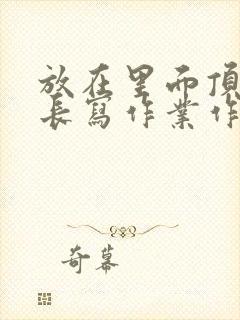 放在里而頂
長寫作業作
奇幕